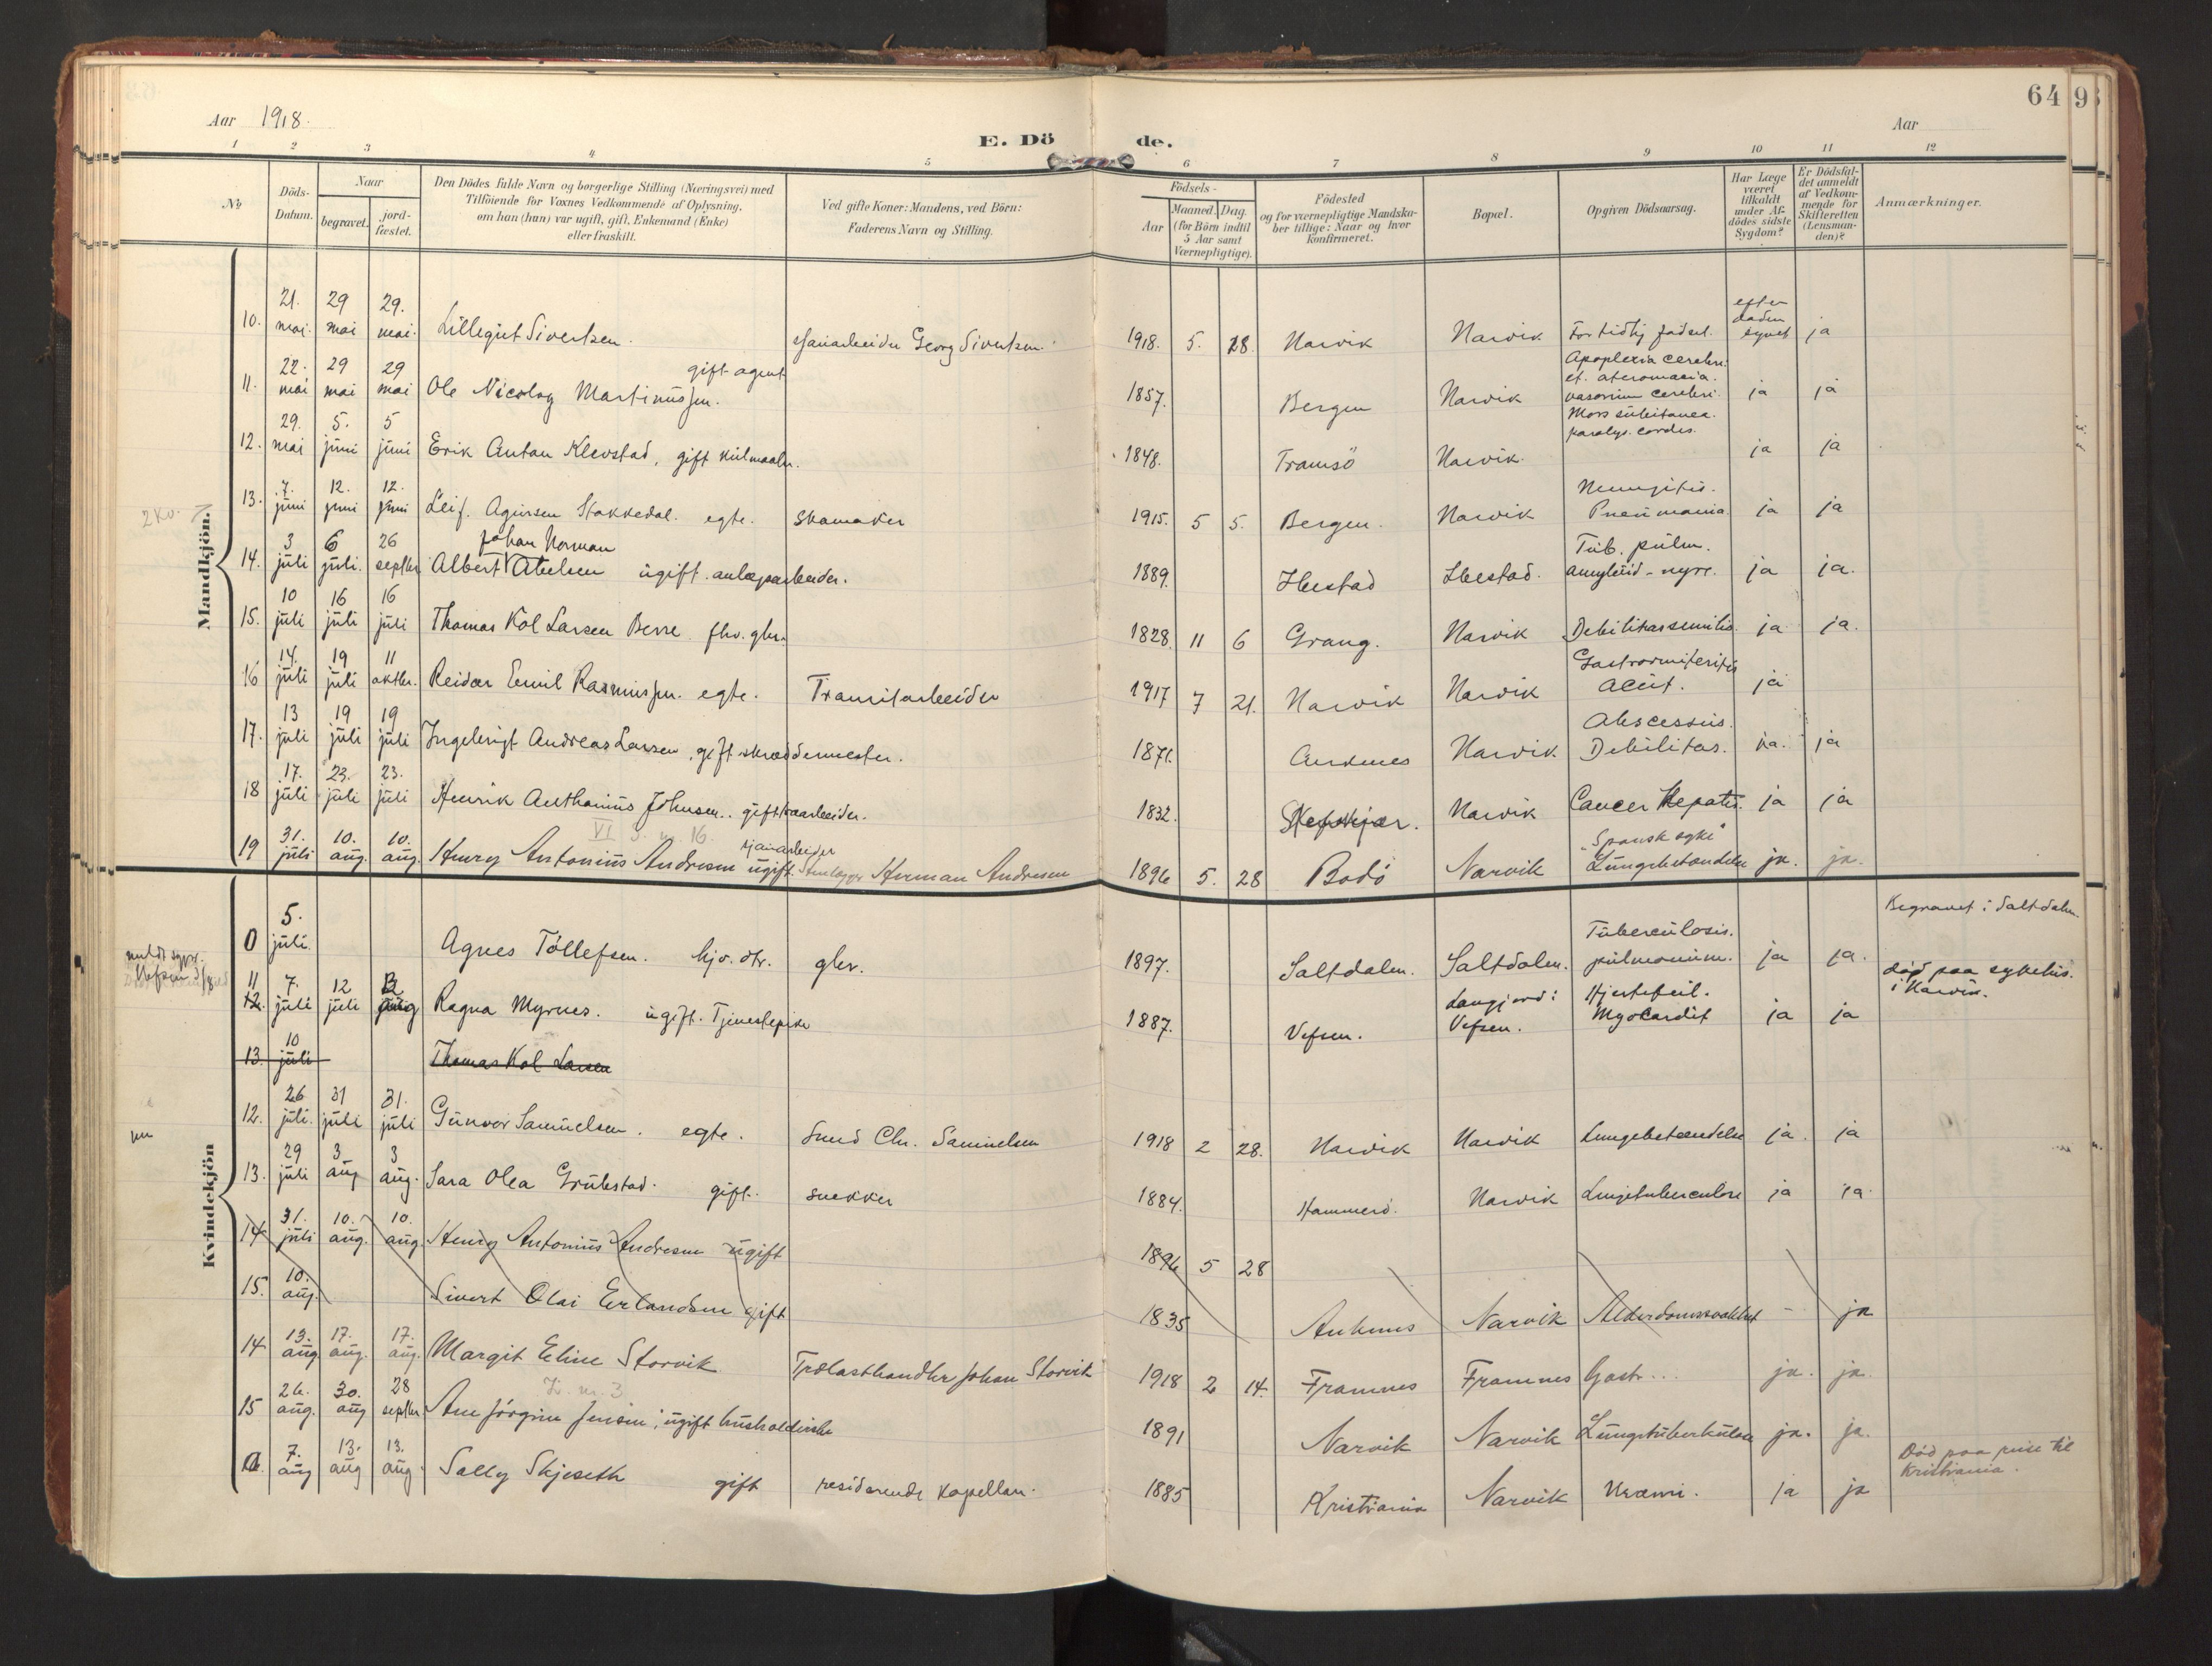 64
9
Aar 1918.
E. Dö de.
Aar
1 2 3 4 5 6 7 8 9 10 11 12
No
Döds-Datum.
Naar
begravet.
jord-fæstet.
Den Dödes fulde Navn og borgerlige Stilling (Næringsvei) med
Tilföiende for Voxnes Vedkommende af Oplysning,
om han (hun) var ugift, gift, Enkemand (Enke)
eller fraskilt.
Ved gifte Koner: Mandens, ved Börn:
Faderens Navn og Stilling.
Födsels-
Aar
Maaned. Dag.
(for Börn indtil
5 Aar samt
Værnepligtige).
Födested
og for værnepligtige Mandska-
ber tillige: Naar og hvor
konfirmeret.
Bopæl.
Opgiven Dödsaarsag.
Har Læge
været
tilkaldt
under Af-
dödes sidste
Sygdom?
Er Dödsfal-
det anmeldt
af Vedkom-
mende for
Skifteretten
(Lensman-
den)?
Anmærkninger.
Mandkjön.
10. 21. mai. 29 mai 29. mai. Lillegut Sivertsen. Georg Sivertsen. 1918. 5. 28. Narvik Narvik For tidlig födsel. efter döden synet ja
11. 22. mai 29 mai 29 mai Ole Nicolay Martinussen. gift agent 1857. Bergen Narvik Apoplexia cerebri. et. vasorum cerebri. ja ja
12. 29. mai 5. juni 5 juni Erik Anton Klevstad, gift 1848. Tromsö Narvik. Mors subitanea. paralys. cordis. ja ja
2 kv.
13. 7. juni 12. juni 12. juni Leif Stokkedal. egte. Skomaker 1915. 5 5. Bergen. Narvik Pneumonia ja ja
14. 3 juli 6 juli. 26 septbr Albert Johan Norman ugift. anlægsarbeider. 1889. Ibestad Ibestad. Tub. pulm. amyloid-nyre. ja ja.
15. 10 juli 16 juli 16 juli Thomas Kol Larsen Berre. fhv. gbr. 1828. 11 6 Grang. Narvik Debilitas senilis. ja ja.
16 14. juli 19 juli 11 oktbr. Reidar Emil Rasmussen. egte. Transitarbeider 1917 7 21. Narvik Narvik acut. ja
17. 13 juli 19 juli 19 juli Ingebrigt Andreas Larsen, gift skræddermester. 1871. Andenes Narvik Abscessus. Debilitas. ja. ja
18 17. juli 23. juli 23. juli Henrik Anthonius Johnsen.. gift 1832. Narvik Cancer Hepatis. ja ja
VI S. nr. 16.
19 31. juli 10. aug. 10. aug. Henry Antonius Andresen ugift. Herman Andresen 1896 5. 28 Bodö Narvik "Spansk syke" Lungebetændelse ja. ja.
Kvindekjön
0 5. juli. Agnes Tollefsen. hjv. dtr. gbr. 1897. Saltdalen. Saltdalen. Tuberculosis. pulmonum. ja ja. Begravet i Saltdalen.
11 12. 7. juli 12 juli Ragna Myrnes. ugift. Tjenestepike 1887. Vefsen. Vefsen. Hjertefeil. Myocardit ja ja död paa sykehus. i Narvik.
13. 10 juli Thomas Kol Larsen
12. 26 juli. 31 juli 31. juli Gunvor Samuelsen. egte. Smed Chr. Samuelsen 1918 2 28. Narvik Narvik Lungebetændelse ja. ja
13. 29 juli 3 aug 3 aug. Sara Olea Grubstad. gift. snekker 1884. Hammerö. Narvik Lungetuberculose ja ja.
14 31. juli 10. aug. 10. aug. Henry Antonius Andresen ugift 1896 5 28
15. 10. aug. Sivert Olai Erlandsen gift 1835 Ankenes Narvik Alderdomssvakhet - ja
14 13. aug 17. aug. 17. aug. Margit Eline Storvik Trælasthandler Johan Storvik 1918 2 14. Framnes Framnes Gastr... ja. ja.
L. nr. 3
15 26. aug. 30. aug 28 septbr. Ane Jörgine Jensen, ugift husholderske 1891 Narvik Narvik Lungetuberkulose ja. ja.
7. aug 13. aug 13. aug. Sally Skjeseth gift residerende kapellan. 1885 Kristiania Narvik Uræmi. ja ja Död paa reise til Kristiania.